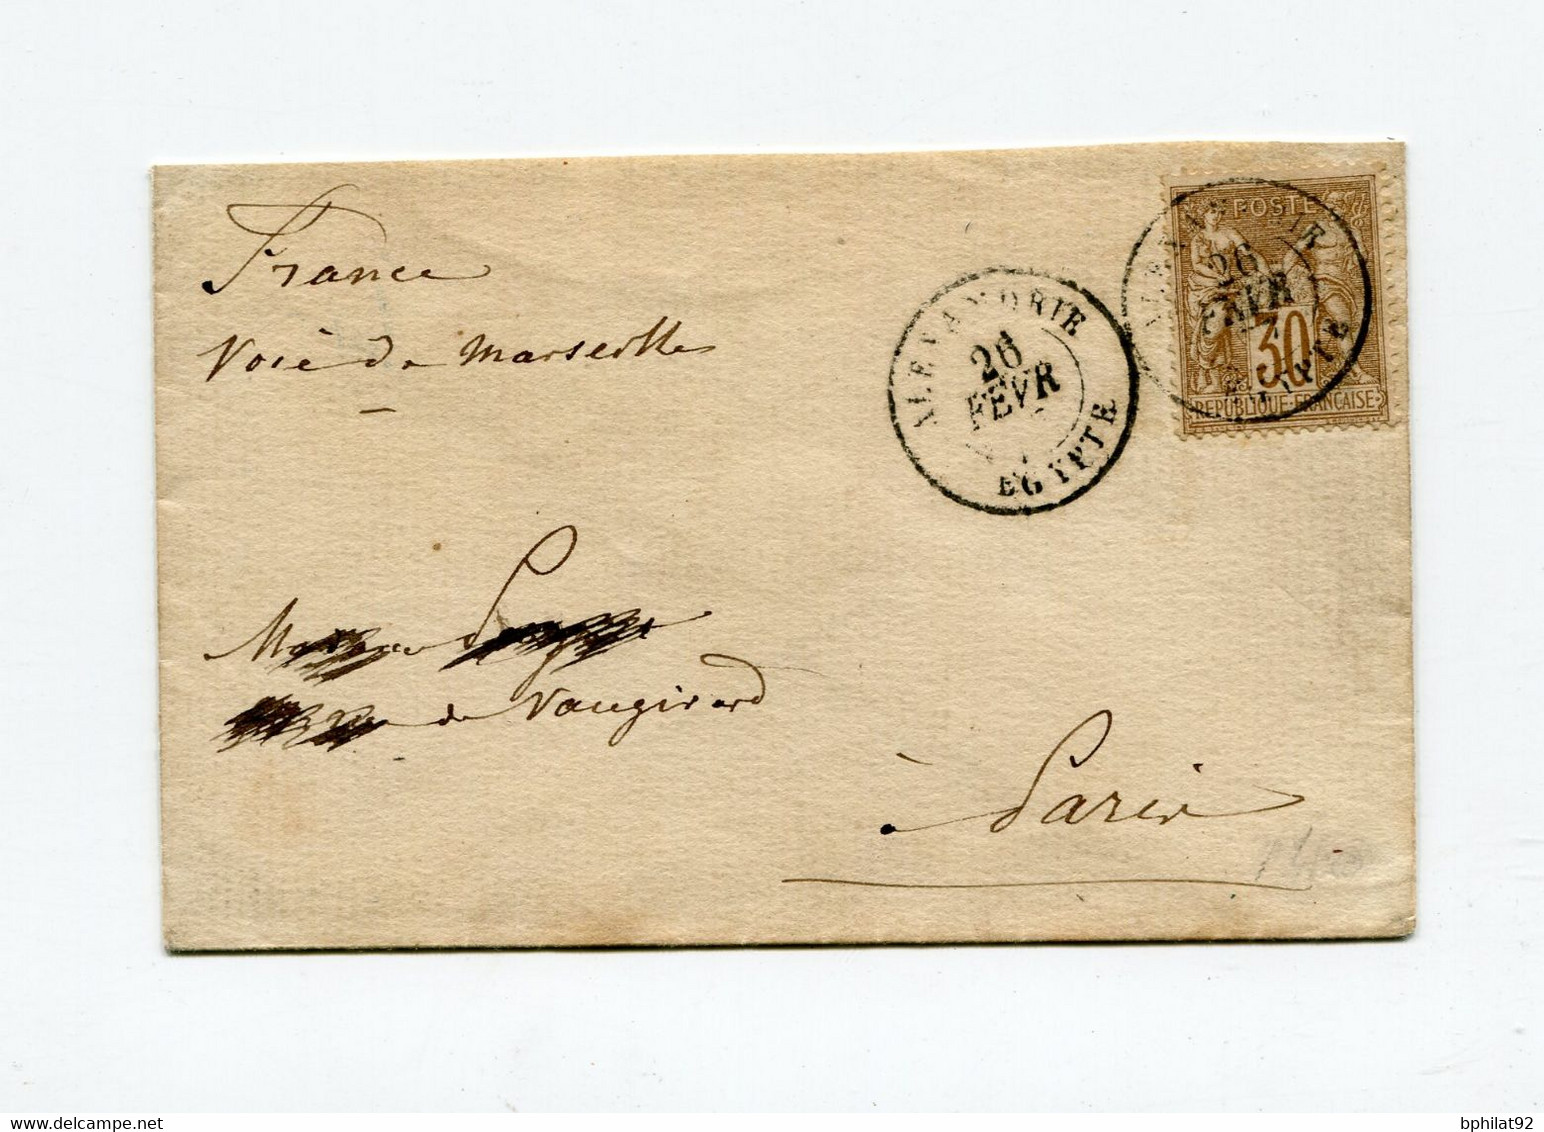 France
Voie de Marseille
POSTE
26
FEVR
30
REPUBLIQUE FRANCAISE
EGYPTE
ALEXANDRIE
26
FEVR
EGYPTE
de Vaugirard
à Paris
delcampe.net
bphilat92